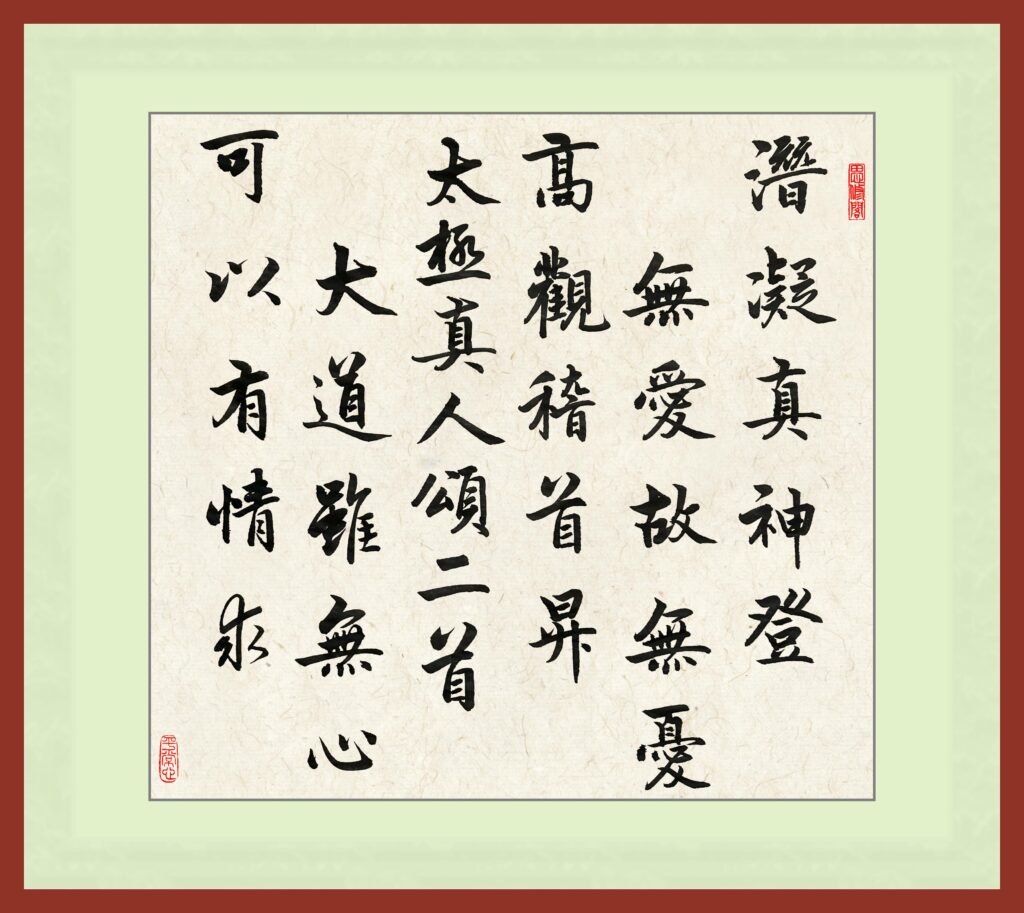 潛凝真神登
無愛故無憂
高觀稽首昇
太極真人頌二首
大道雖無心
可以有情求
平常心